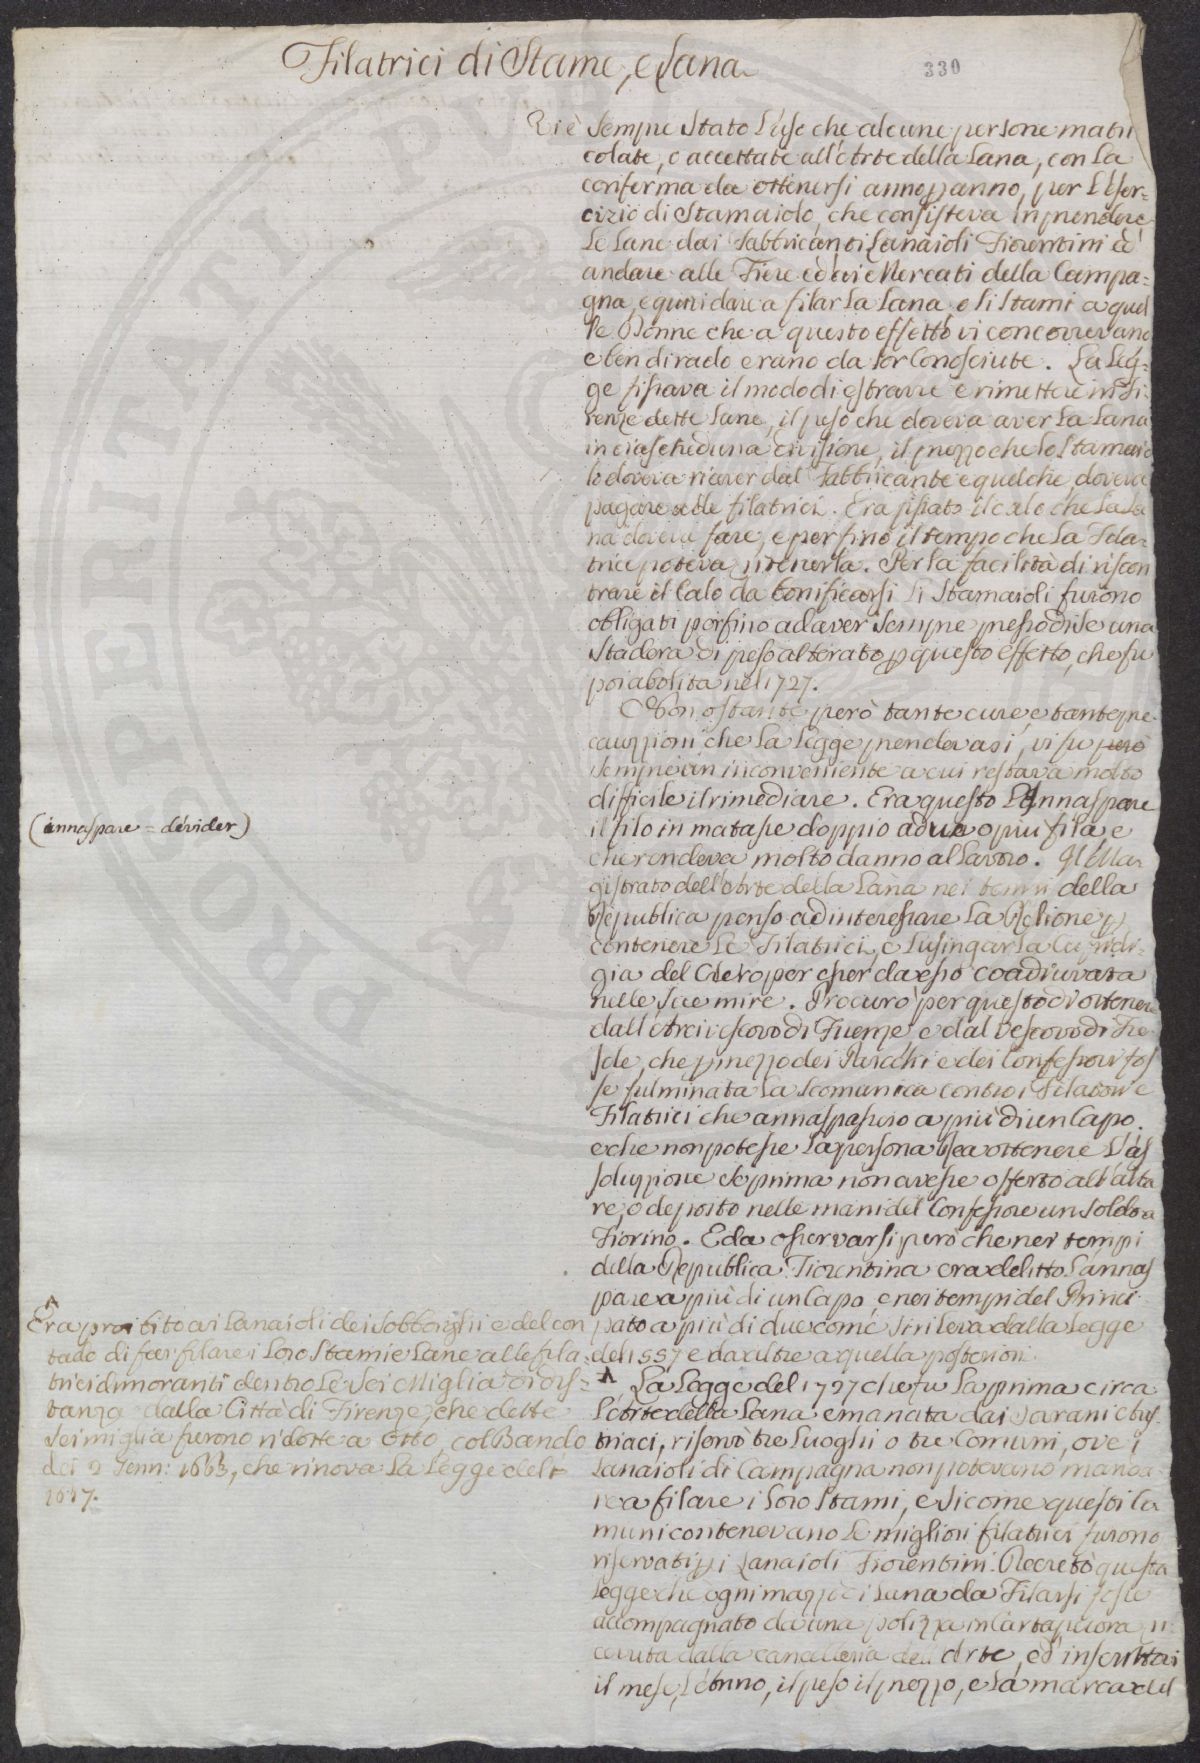 Filatrici di Stame, e Lana
330
Vi è sempre stato l'uso che alcune persone matri
colate, o accettate all'Arte della Lana, con la
conferma da ottenersi anno p anno, per l'Eser=
cizio di Stamaiolo, che consisteva in prendere
le Lane dai Fabbricanti Lanaioli Fiorentini ed
andare alle Fiere ed ai Mercati della Campa=
gna, e quivi dare a filar la Lana, e li Stami a quel
le Donne che a questo effetto vi concorrevano
e ben di rado erano da lor Conosciute. La Leg=
ge fissava il modo di estrarre e rimettere in Fi
renze dette Lane, il peso che doveva aver la Lana
in ciascheduna divisione, il prezzo che lo Stamaio
lo doveva riaver dal Fabbricante e quel che doveva
pagare alle filatrici. Era fissato il calo che la La
na doveva fare, e perfino il tempo che la Fila=
trice poteva ritenerla. Per la facilità di riscon
trare il Calo da bonificarsi li Stamaioli furono
obligati perfino ad aver sempre presso di se una
Stadera di peso alterato p questo effetto, che fu
poi abolita nel 1727.
Non ostante però tante cure, e tante pre
cauzzioni che la Legge prendevasi, vi fu però
sempre un inconveniente a cui restava molto
difficile il rimediare. Era questo l'Annaspare
il filo in matasse doppio a due o più fila e
che rendeva molto danno al Lavoro. Il Ma
gistrato dell'Arte della Lana nei tempi della
Republica penso ad interessare la Relione p
contenere le Filatrici, e lusingar la Cupidi=
gia del Clero per esser da esso coadiuvata
nelle sue mire. Procurò per questo di ottenere
dall'Arcivescovo di Firenze, e dal Vescovo di Fie
sole, che p mezzo dei Parochi e dei Confessori fos
se fulminata la scomunica contro i Filatori e
Filatrici che annaspassero a più di un Capo.
e che non potesse la persona Rea ottenere l'as
soluzzione se prima non avesse offerto all'alta
re, o deposto nelle mani del Confessore un soldo a
Fiorino. E da osservarsi però che nei tempi
della Republica Fiorentina era delitto l'annas
pare a più di un Capo, e nei tempi del Princi
pato a più di due come si rileva dalla Legge
del 1557 e da altre a quella posteriori.
^ La Legge del 1727 che fu la prima circa
l'Arte della Lana emanata dai Sovrani Aus
triaci, riservò tre Luoghi o tre Comuni, ove i
Lanaioli di Campagna non potevano manda
re a filare i loro Stami, e siccome questi Co
muni contenevano le migliori filatrici furono
riservati p i Lanaioli Fiorentini. Decretò questa
Legge che ogni mazzo di Lana da Filarsi fosse
accompagnato da una polizza in Carta pecora ri
cevuta dalla cancelleria dell'Arte, ed inscrittavi
il mese, l'Anno, il peso il prezzo, e la marca del
(annaspare = dévider)
^
Era proibito ai Lanaioli dei Sobborghi e del con
tado di far filare i loro Stami e Lane alle fila=
trici dimoranti dentro le sei Miglia di dis=
tanza dalla Città di Firenze, che dette
sei miglia furono ridotte a Otto, col Bando
dei 2 Genn: 1663, che rinova la Legge del
1617.